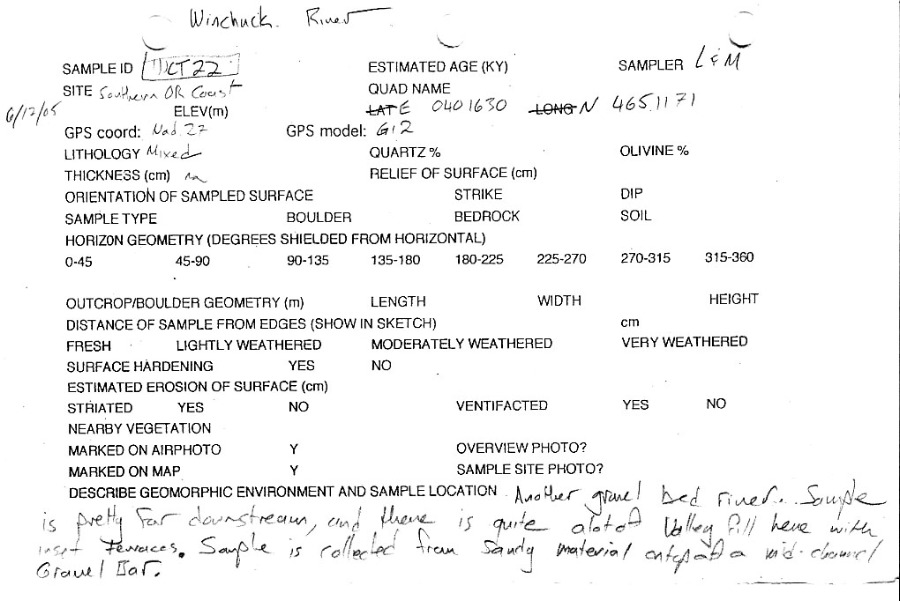 Winchuck River
SAMPLE ID TJCT22 ESTIMATED AGE (KY) SAMPLER L & M
SITE Southern OR Coast QUAD NAME
6/17/05 ELEV(m) LAT E 0401630 LONG N 4651171
GPS coord: Nad 27 GPS model: G12
LITHOLOGY Mixed QUARTZ % OLIVINE %
THICKNESS (cm) na RELIEF OF SURFACE (cm)
ORIENTATION OF SAMPLED SURFACE STRIKE DIP
SAMPLE TYPE BOULDER BEDROCK SOIL
HORIZON GEOMETRY (DEGREES SHIELDED FROM HORIZONTAL)
0-45 45-90 90-135 135-180 180-225 225-270 270-315 315-360
OUTCROP/BOULDER GEOMETRY (m) LENGTH WIDTH HEIGHT
DISTANCE OF SAMPLE FROM EDGES (SHOW IN SKETCH) cm
FRESH LIGHTLY WEATHERED MODERATELY WEATHERED VERY WEATHERED
SURFACE HARDENING YES NO
ESTIMATED EROSION OF SURFACE (cm)
STRIATED YES NO VENTIFACTED YES NO
NEARBY VEGETATION
MARKED ON AIRPHOTO Y OVERVIEW PHOTO?
MARKED ON MAP Y SAMPLE SITE PHOTO?
DESCRIBE GEOMORPHIC ENVIRONMENT AND SAMPLE LOCATION Another gravel bed river. Sample
is pretty far downstream, and there is quite a lot of Valley fill here with
inset Terraces. Sample is collected from Sandy material on top of a mid-channel
Gravel Bar.